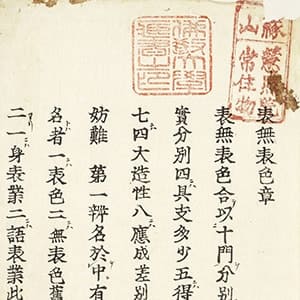 表無表色章
表無表色合以十門分別
實分別四具支多少五得
七四大造性八應成差別
妨難 第一辨名於中有
名者一表色二無表色舊
二一身表業二語表業此
山常住物